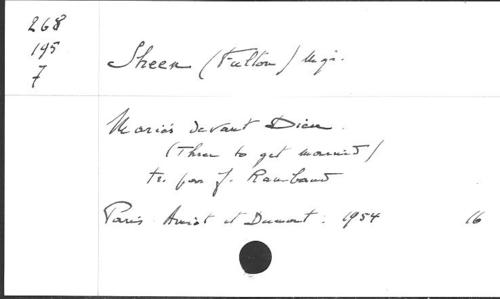 268
195
7
Sheen (Fulton) Mgr.
Mariés devant Dieu.
(Three to get married)
tr. par J. Rambaud
Paris Amiot et Dumont. 1954 16